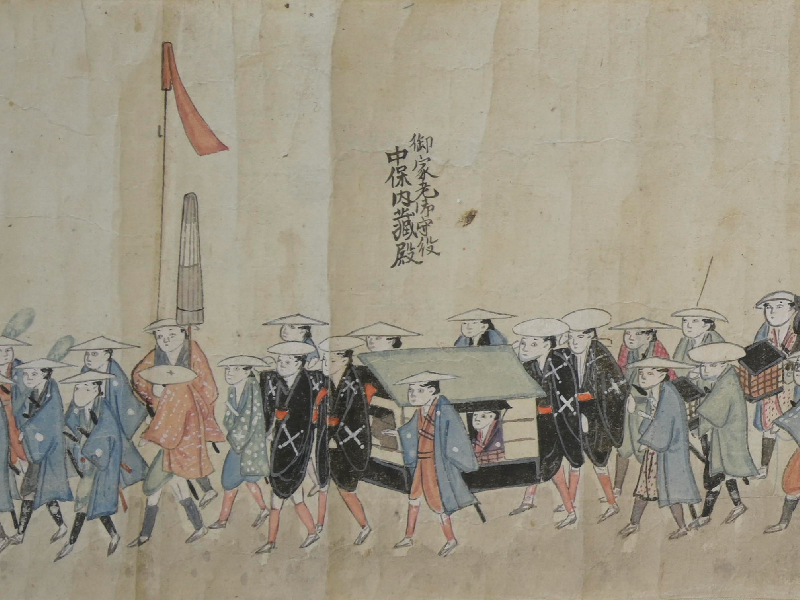 御家老御守役
中保内蔵殿